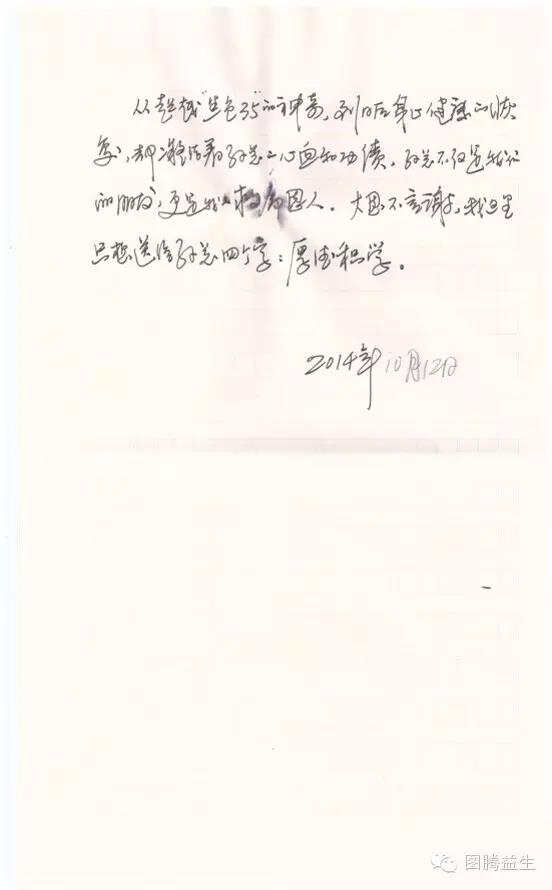 从超越"蓝色35"的神奇，到日后身心健康的恢
复，都凝结着孙总的心血和功绩。孙总不仅是我们
的朋友，更是我的救命恩人。大恩不言谢，我这里
只想送给孙总四个字：厚德积学。
2014年10月12日
图腾益生